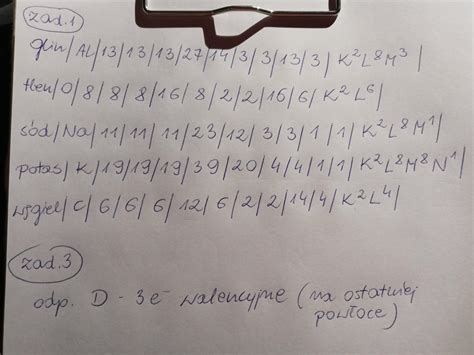 zad.1
glin/ AL/13/13/13/27/14/3/3/13/3/ K²L⁸M³ /
tlen/O/8/8/8/16/8/2/2/16/6/ K²L⁶/
sód/Na/11/11/11/23/12/3/3/1/1/K²L⁸M¹/
potas/K/19/19/19/39/20/4/4/1/1/K²L⁸M⁸N¹/
węgiel/C/6/6/6/12/6/2/2/14/4/K²L⁴/
zad.3
odp. D - 3e⁻ walencyjne (na ostatniej
powłoce)